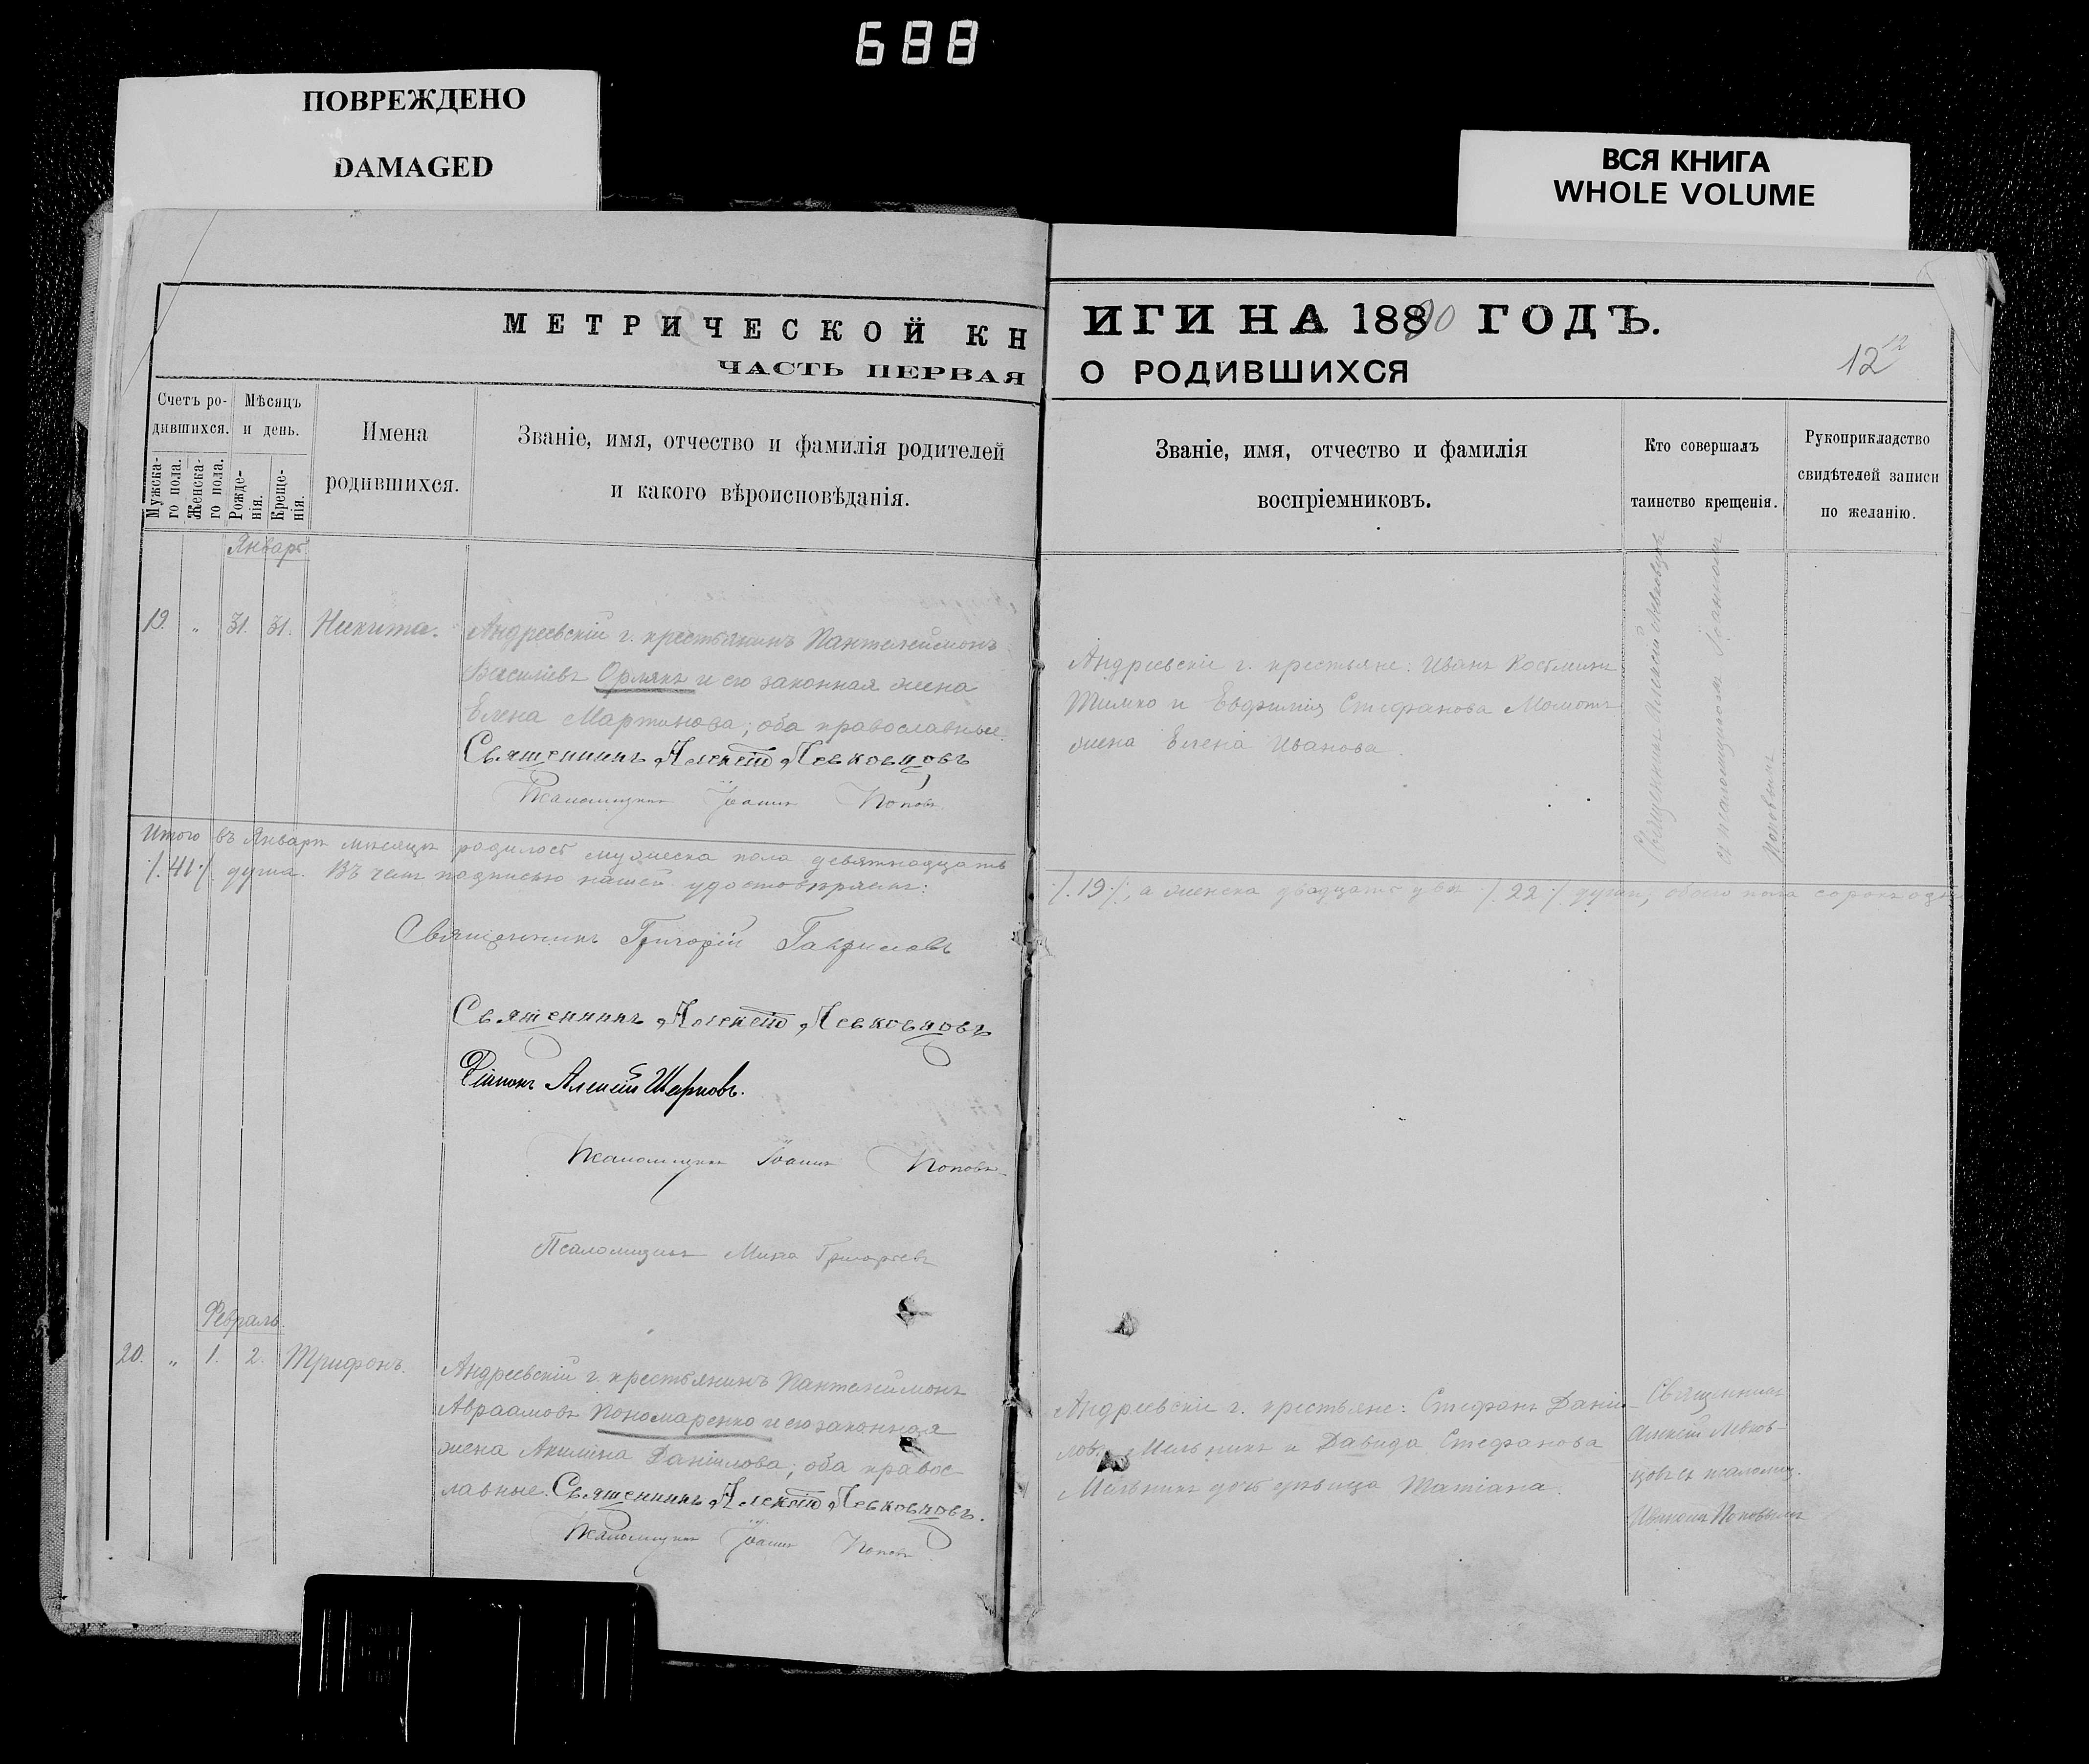 688
ПОВРЕЖДЕНО
DAMAGED
ВСЯ КНИГА
WHOLE VOLUME
МЕТРИЧЕСКОЙ КН
ЧАСТЬ ПЕРВАЯ
Счетъ ро-
дившихся.
Мѣсяцъ
и день.
Мужска-
го пола.
Женска-
го пола.
Рожде-
нія.
Креще-
нія.
Имена
родившихся.
Званіе, имя, отчество и фамилія родителей
и какого вѣроисповѣданія.
Январь
19. „ 31. 31. Никита.
Андреевскій г. крестьянинъ Пантелеймонъ
Васильевъ Орлякъ и его законная жена
Елена Мартинова; оба православные.
Священникъ Алексѣй Левковцовъ
Псаломщикъ Іоаннъ Поповъ
Итого въ Январѣ мѣсяцѣ родилось мужеска пола девятнадцать
/.41./ душа. Въ чемъ подписью нашей удостовѣряемъ:
Священникъ Григорій Гавриловъ
Священникъ Алексѣй Левковцовъ
Діаконъ Алексѣй
Псаломщикъ Іоаннъ Поповъ
Псаломщикъ Мина Григорьевъ
Февраль.
20. „ 1. 2. Трифонъ.
Андреевскій г. крестьянинъ Пантелеймонъ
Авраамовъ Пономаренко и его законная
жена Акилина Даніилова; оба правос-
лавные. Священникъ Алексѣй Левковцовъ.
Псаломщикъ Іоаннъ Поповъ
ИГИ НА 18890 ГОДЪ.
О РОДИВШИХСЯ
12 12
Званіе, имя, отчество и фамилія
воспріемниковъ.
Кто совершалъ
таинство крещенія.
Рукоприкладство
свидѣтелей записи
по желанію.
Андреевскіе г. крестьяне: Иванъ Косьминъ
Тимко и Евфимія Стефанова
жена Елена Иванова.
Священникъ Алексѣй Левковцовъ
съ псаломщикомъ Іоанномъ
Поповымъ
/.19./, а женска двадцать двѣ /.22./ души, обоего пола сорокъ одн
Андреевскіе г. крестьяне: Стефанъ Даніи-
ловъ Мельникъ и Давида Стефанова
Мельникъ дочь дѣвица Татіана.
Священникъ
Алексѣй Левков-
цовъ съ псаломщ.
Іоанномъ Поповымъ